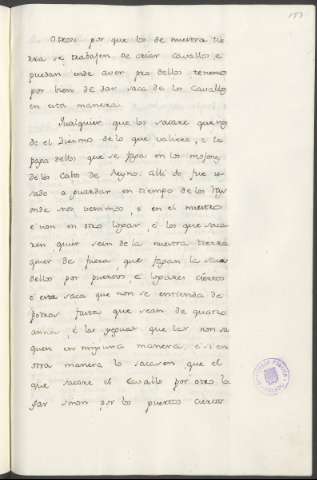 Otrosi por que los de nuestra tie
rra se trabajen de criar Cavallos, e
puedan ende aver pro dellos tenemos
por bien de dar saca de los Cavallos
en esta manera.
Qualquier que los sacare que nos
de el Diezmo de lo que valiere, e la
paga dellos que se faga en los mojones
de los Cabos de Reyno. alli do fue u
sado a guardar en tiempo de los Reys
onde nos venimos, e en el nuestro
e non en otro logar, e los que saca
ren, quier sean de la nuestra tierra
quier de fuera que fagan la saca
dellos por puertos, e logares ciertos
e esta saca que non se entienda de
potros fasta que sean de quatro
annos, e las yeguas que las non sa
quen en ninguna manera, e si en
otra manera lo sacasen que el
que sacare el Cavallo por otro lo
gar sinon por los puertos ciertos